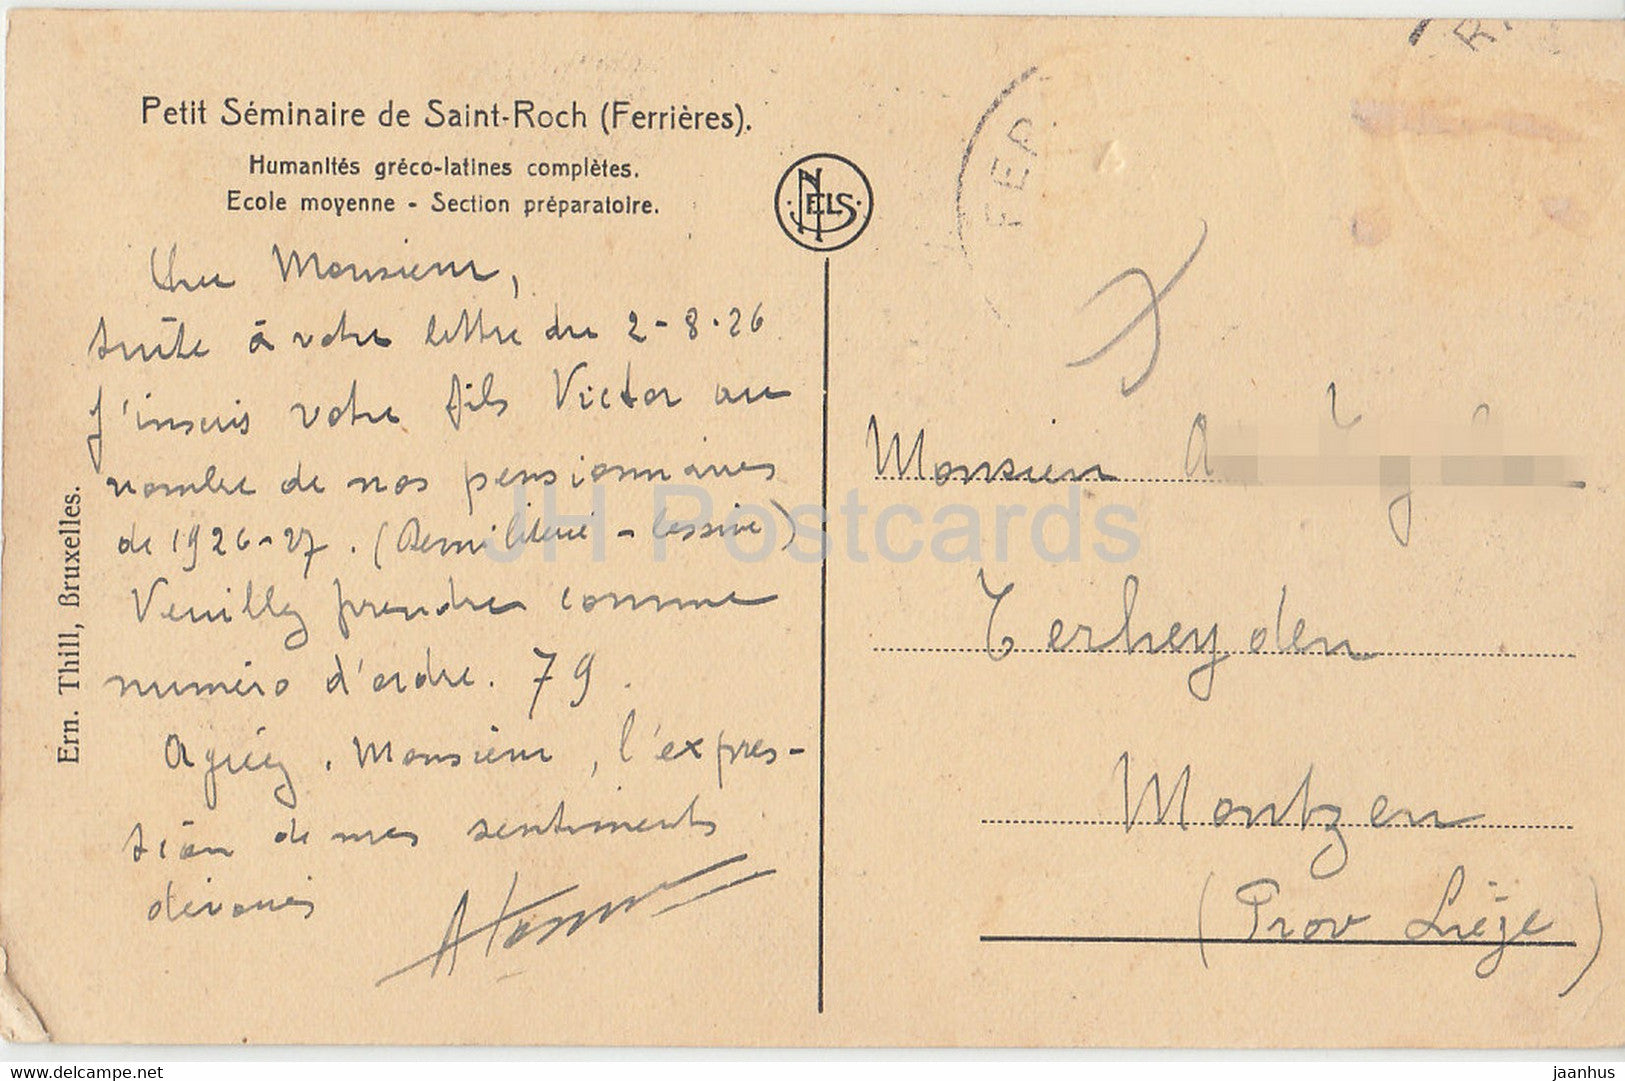 Petit Séminaire de Saint-Roch (Ferrières).
Humanités gréco-latines complètes.
Ecole moyenne - Section préparatoire.
NELS
Cher Monsieur,
suite à votre lettre du 2-8-26
j'inscris votre fils Victor au
nombre de nos pensionnaires
de 1926-27. (Demi literie - lessive)
Veuillez prendre comme
numéro d'ordre. 79.
Agréez, Monsieur, l'expres-
sion de mes sentiments
dévoués
Ern. Thill, Bruxelles.
FER
R
Monsieur
Terheyden
Montzen
(Prov Liège)
JH Postcards
delcampe.net
jaanhus